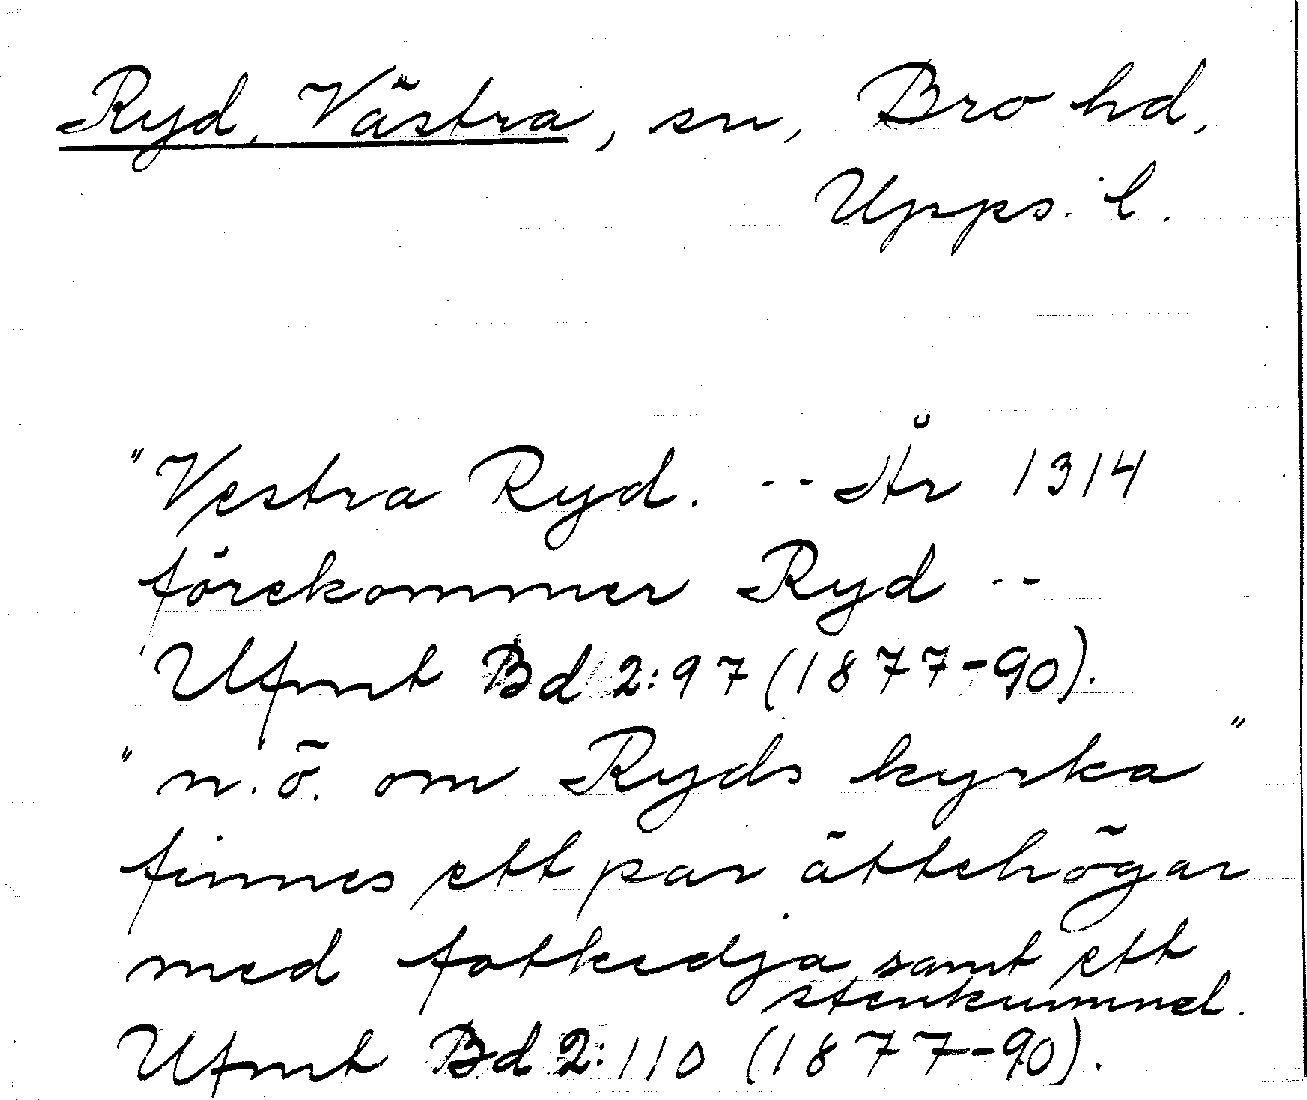 Ryd, Västra, sn, Bro hd,
Upps. l.
"Vestra Ryd. -- År 1314
förekommer Ryd --
Ufmt Bd 2:97 (1877-90).
"n.ö. om Ryds kyrka"
finnes ett par ättehögar
med fotkedja samt ett
stenkummel.
Ufmt Bd 2:110 (1877-90).